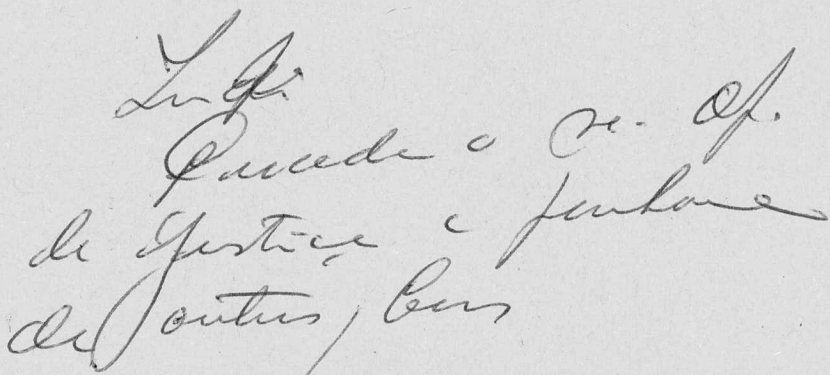 Proceda o sr. Of.
de Justiça a penhora
de outros bens